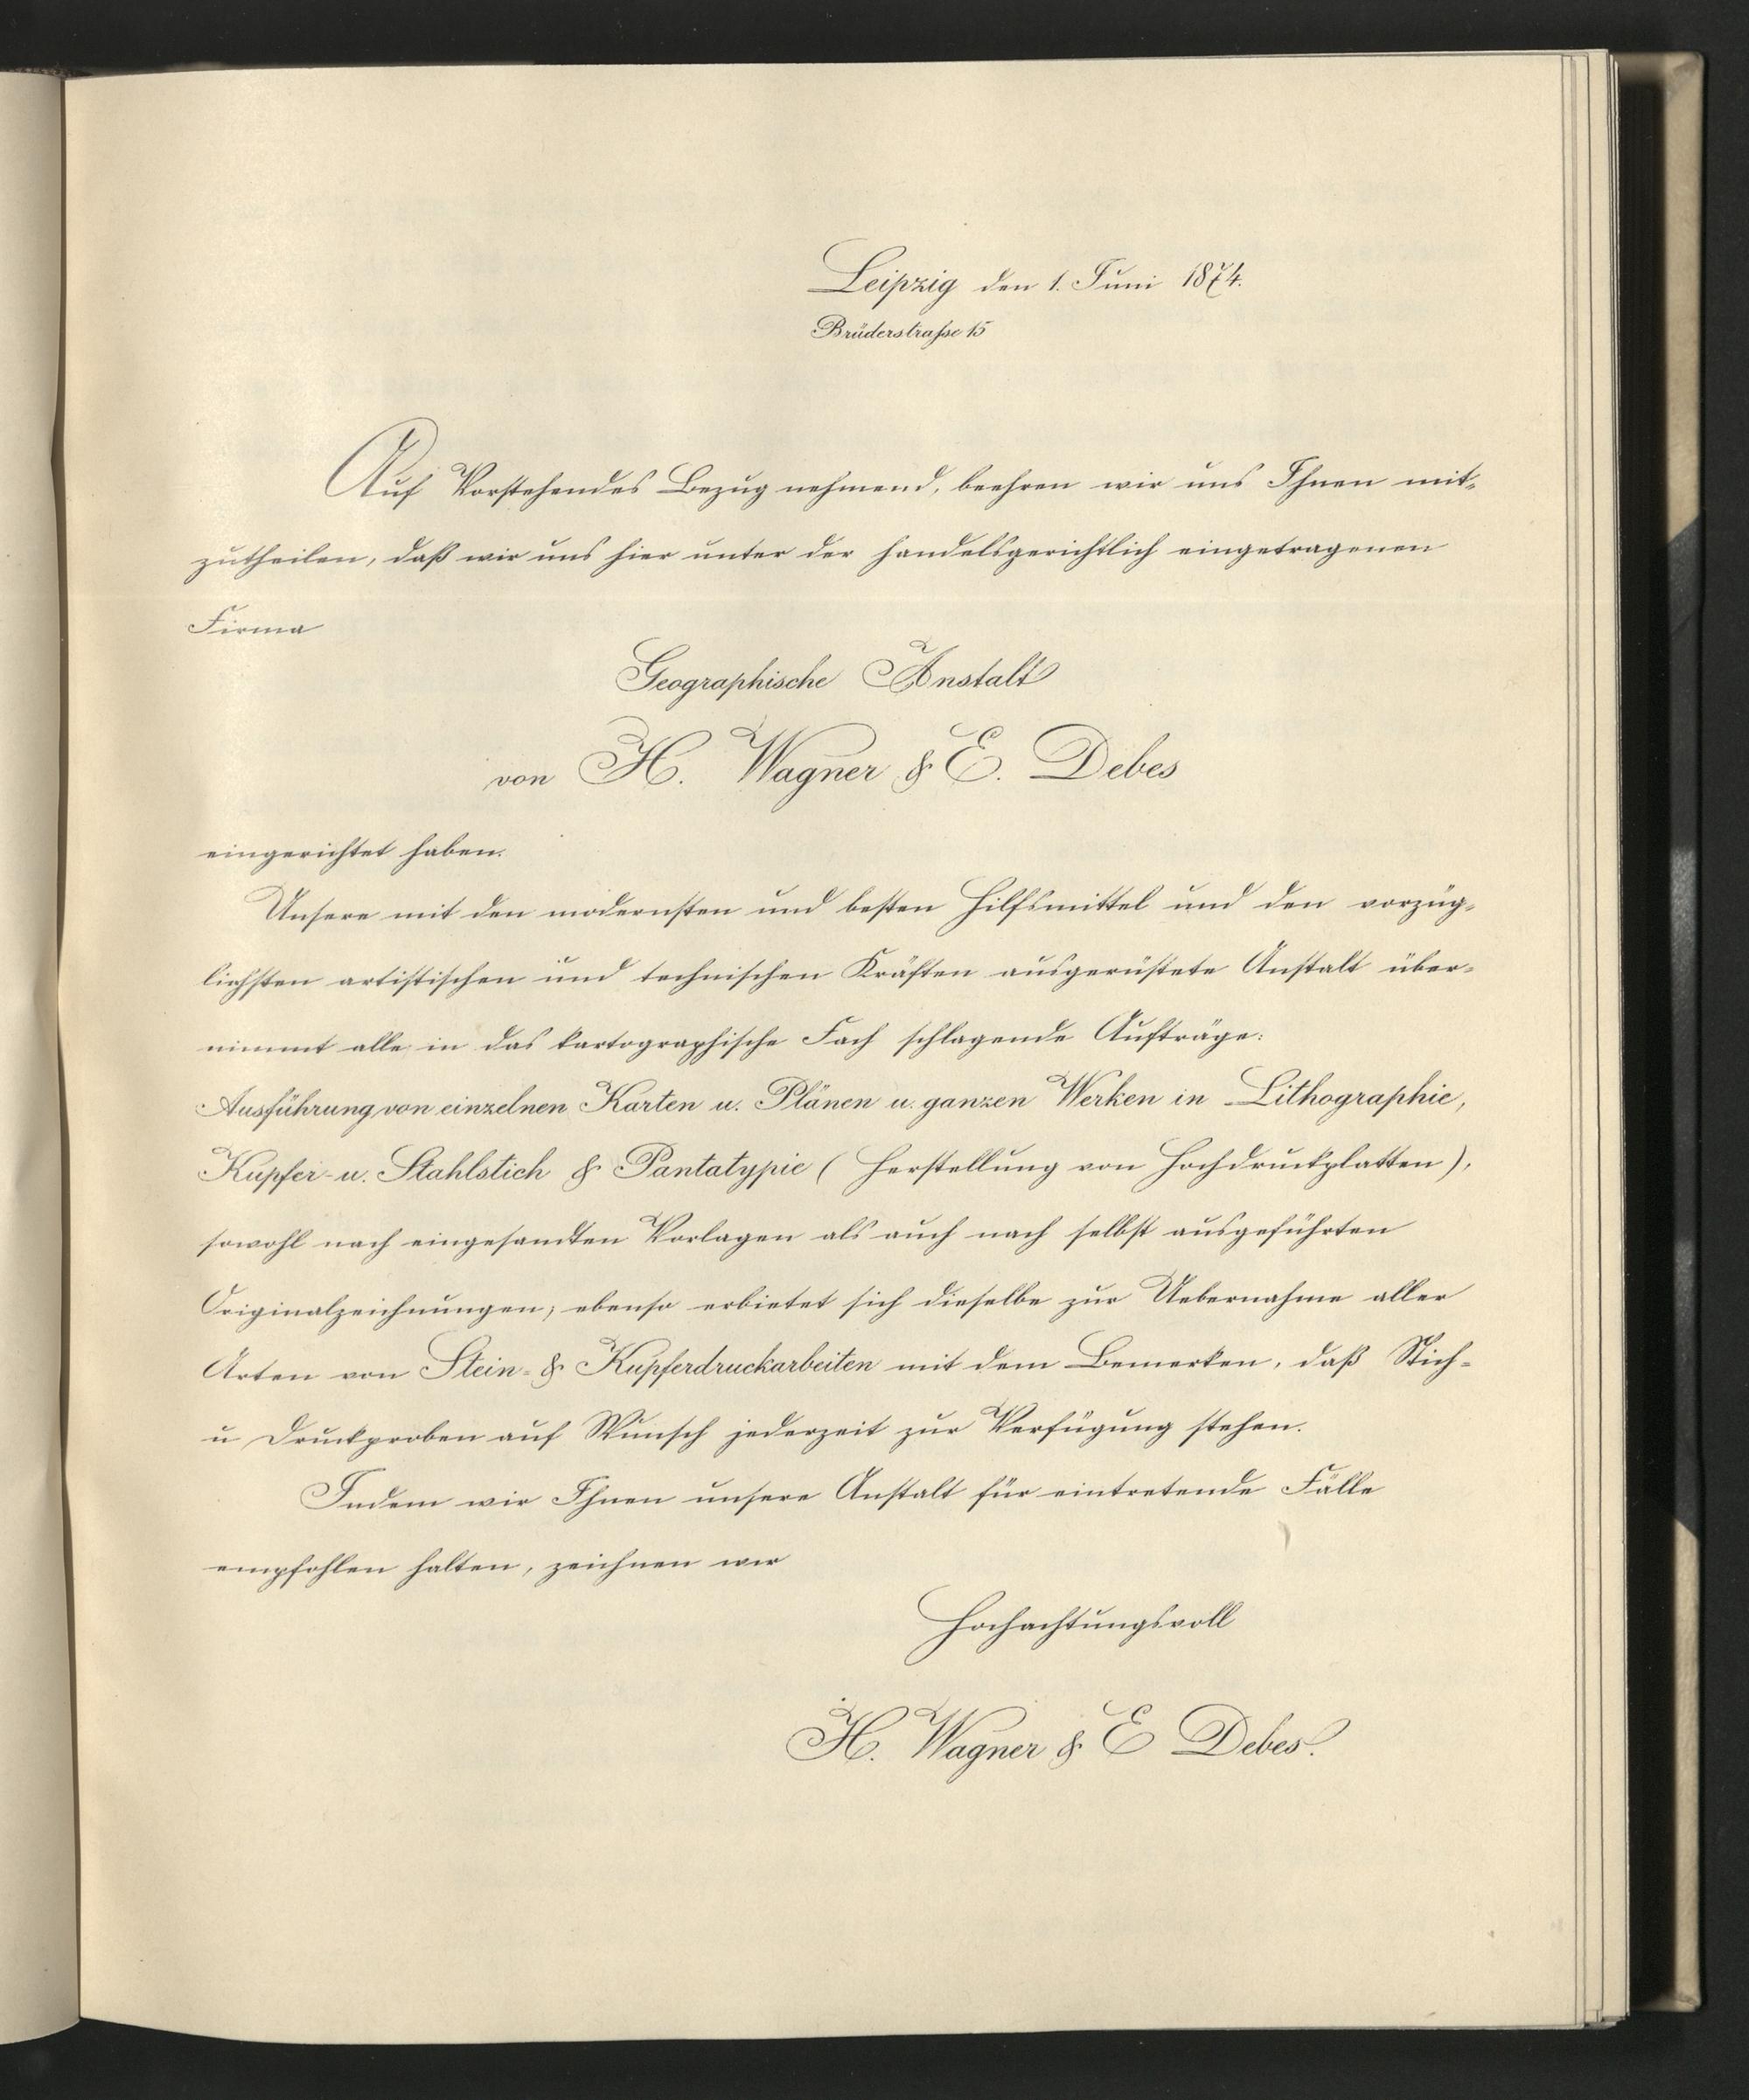 Leipzig den 1. Juni 1874.
Brüderstraße 15
Auf Vorstehendes Bezug nehmend, beehren wir uns Ihnen mit-
zutheilen, daß wir uns hier unter der handelsgerichtlich eingetragenen
Firma
Geographische Anstalt
von H. Wagner & E. Debes
eingerichtet haben.
Unsere mit den modernsten und besten Hilfsmittel und den vorzüg-
lichsten artistischen und technischen Kräften ausgerüstete Anstalt über-
nimmt alle in das kartographische Fach schlagende Aufträge:
Ausführung von einzelnen Karten u. Plänen u. ganzen Werken in Lithographie,
Kupfer- u. Stahlstich & Pantatypie (Herstellung von Hochdruckplatten),
sowohl nach eingesandten Vorlagen als auch nach selbst ausgeführten
Originalzeichnungen; ebenso erbietet sich dieselbe zur Uebernahme aller
Arten von Stein- & Kupferdruckarbeiten mit dem Bemerken, daß Stich-
u Druckproben auf Wunsch jederzeit zur Verfügung stehen.
Indem wir Ihnen unsere Anstalt für eintretende Fälle
empfohlen halten, zeichnen wir
Hochachtungsvoll
H. Wagner & E Debes.